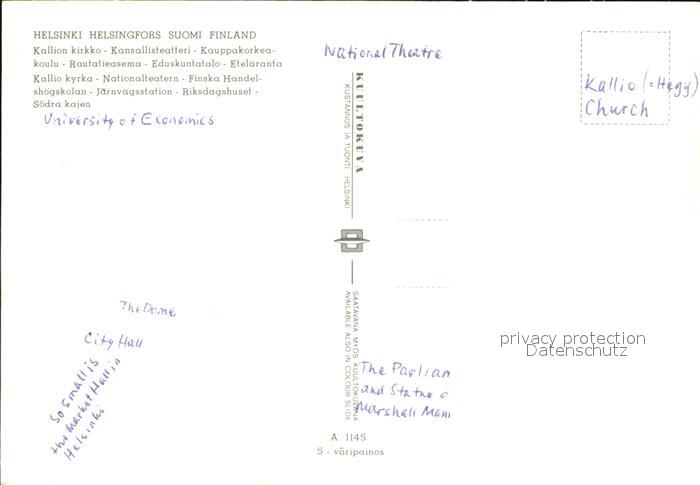 HELSINKI HELSINGFORS SUOMI FINLAND
Kallion kirkko - Kansallisteatteri - Kauppakorkea-
koulu - Rautatieasema - Eduskuntatalo - Eteläranta
Kallio kyrka - Nationalteatern - Finska Handel-
shögskolan - Järnvägsstation - Riksdagshuset -
Södra kajen
University of Economics
National Theatre
Kallio (=Hegy)
Church
KUULTOKUVA
KUSTANNUS JA TUONTI HELSINKI
SAATAVANA MYÖS KUULTOKUVANA
AVAILABLE ALSO IN COLOUR SLIDE
The Dome
City Hall
So small is
the Market Hall in
Helsinki
privacy protection
Datenschutz
The Parliam
and Statue o
Marshall Mann
A 1145
5 - väripainos